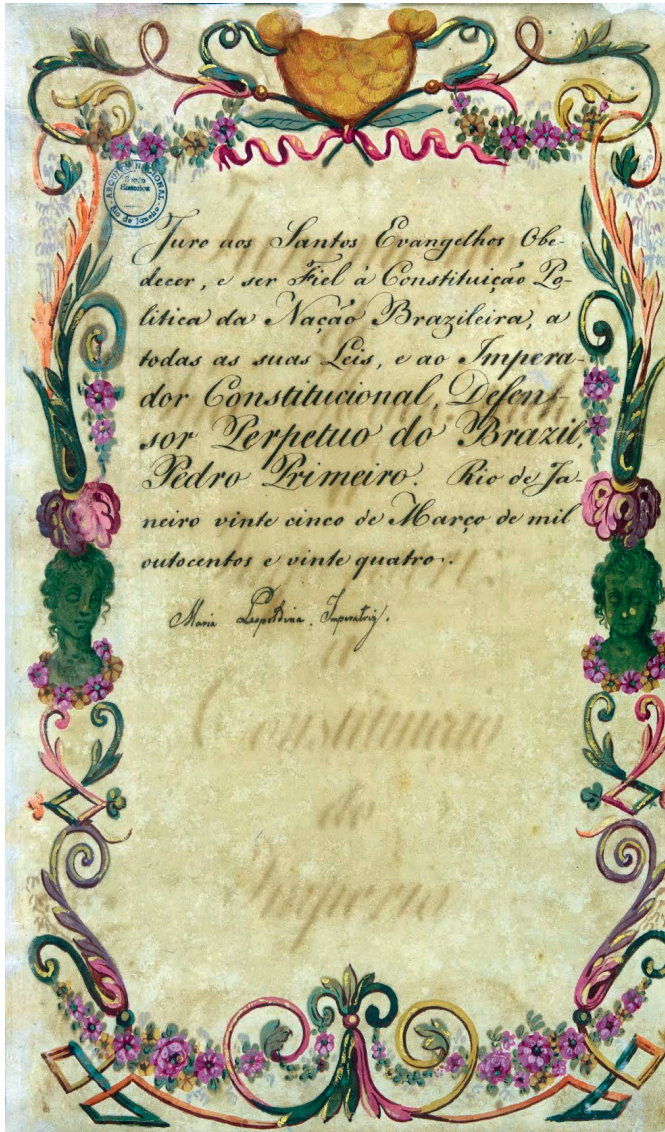 ARQUIVO NACIONAL
Secção
Historica
Rio de Janeiro
Juro aos Santos Evangelhos Obe-
decer, e ser Fiel á Constituição Po-
litica da Nação Brazileira, a
todas as suas Leis, e ao Impera-
dor Constitucional, Defen-
sor Perpetuo do Brazil,
Pedro Primeiro. Rio de Ja-
neiro vinte cinco de Março de mil
outocentos e vinte quatro.
Maria Leopoldina. Imperatriz.